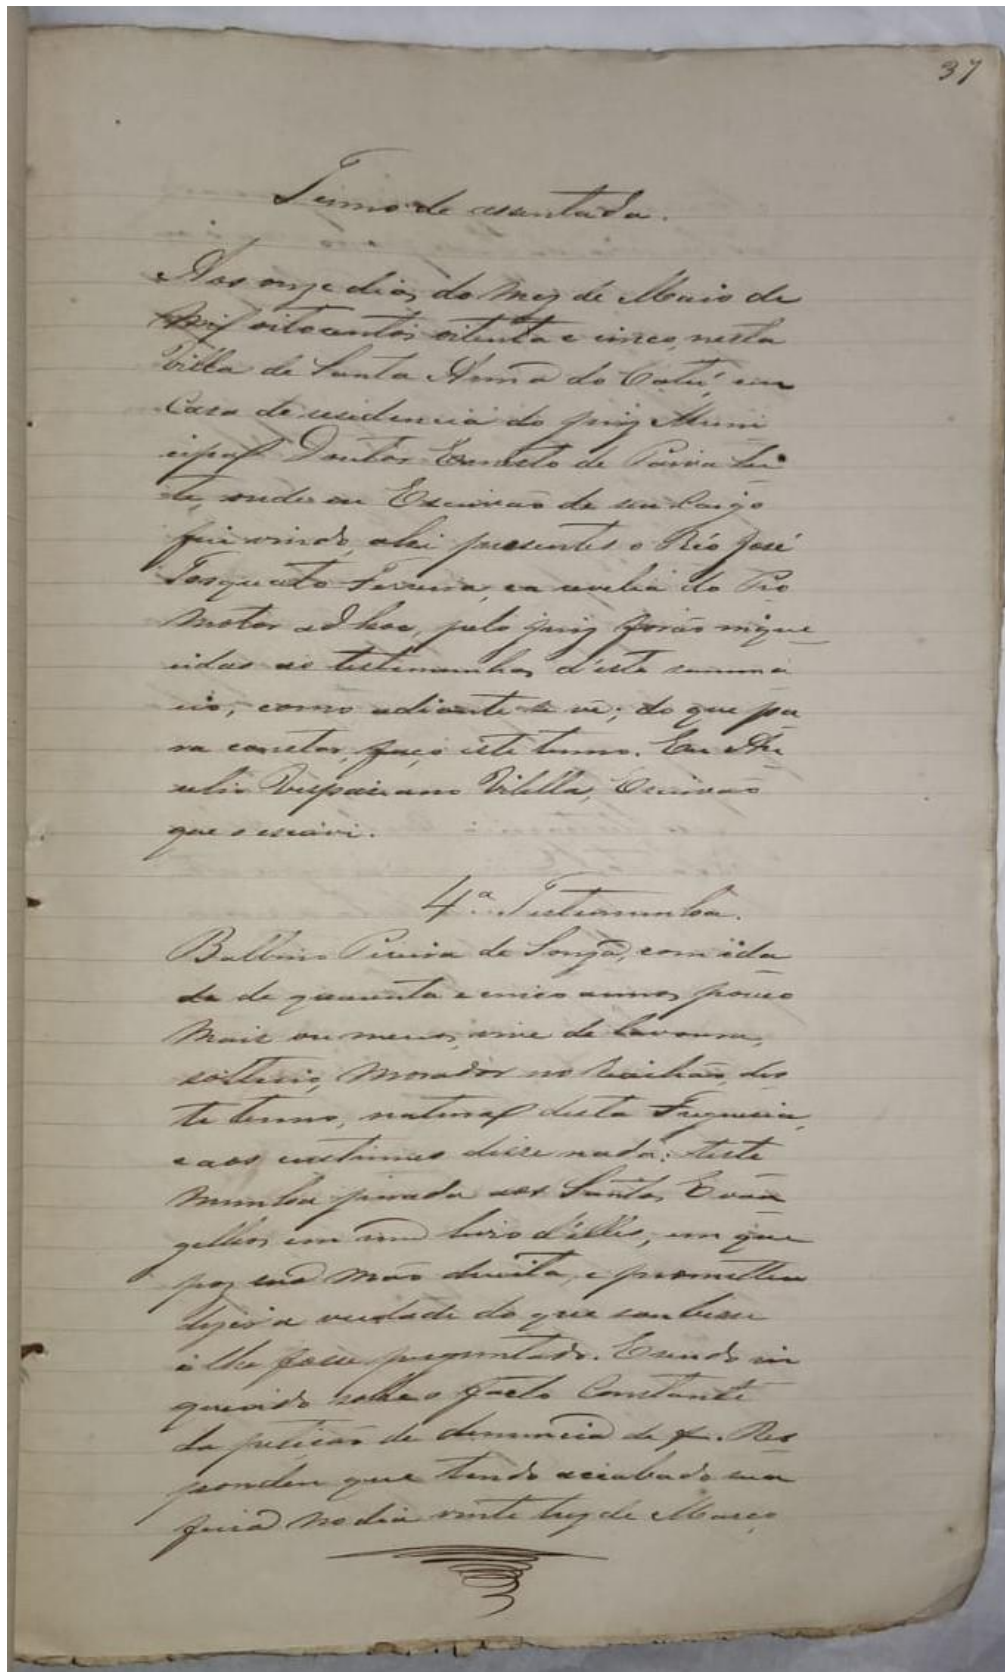 37
Termo de assentada.
Aos onze dias do mez de Maio de
mil oitocentos oitenta e cinco, nesta
Villa de Santa Anna do Catú, em
Casa de residencia do juiz Muni
cipal Doutor Ernesto de Paiva Lei
te, onde eu Escrivão de seu Cargo
fui vindo, ahi presentes o Réo José
Torquato Ferreira, e a revelia do Pro
motor ad hoc, pelo juiz forão inque
ridas as testemunhas d'este summa
rio, como adiante se vê; do que pa
ra constar, faço este termo. Eu
Vespasiano Vilella, Escrivão
que o escrevi.
4.ª Testemunha.
Balbino Pereira de Souza, com ida
de de quarenta e cinco annos, pouco
mais ou menos, vive de lavoura,
solteiro, morador no Riachão, des
te termo, natural desta Freguesia,
e aos custumes disse nada; teste
munha jurada aos Santos Evan
gelhos em um livro d'elles, em que
poz sua mão direita, e prometteu
dizer a verdade do que soubesse
e lhe fosse perguntado. E sendo in
querido sobre o facto Constante
da petição de denuncia de f. Res
pondeu que tendo acabado sua
feira no dia vinte trez de Março